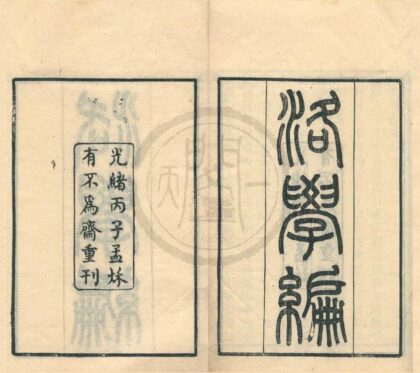 洛學編
光緒丙子孟秌
有不為齋重刊